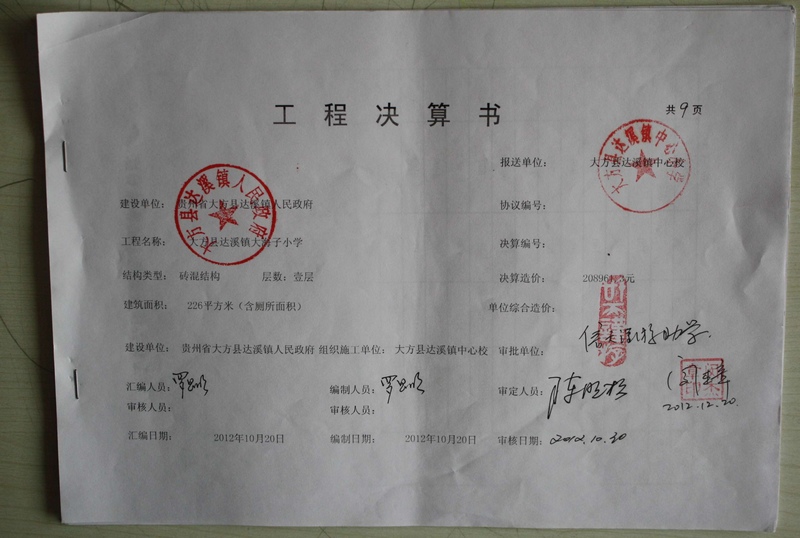 工程决算书
共9页
报送单位: 大方县达溪镇中心校
大方县达溪镇中心小学
大方县达溪镇人民政府
建设单位: 贵州省大方县达溪镇人民政府 协议编号:
工程名称: 大方县达溪镇大海子小学 决算编号:
结构类型: 砖混结构 层数: 壹层 决算造价: 元
建筑面积: 226平方米(含厕所面积) 单位综合造价:
建设单位: 贵州省大方县达溪镇人民政府 组织施工单位: 大方县达溪镇中心校 审批单位:
汇编人员: 编制人员: 审定人员:
审核人员: 审核人员: 2012.12.20.
汇编日期: 2012年10月20日 编制日期: 2012年10月20日 审核日期: 2012.10.20